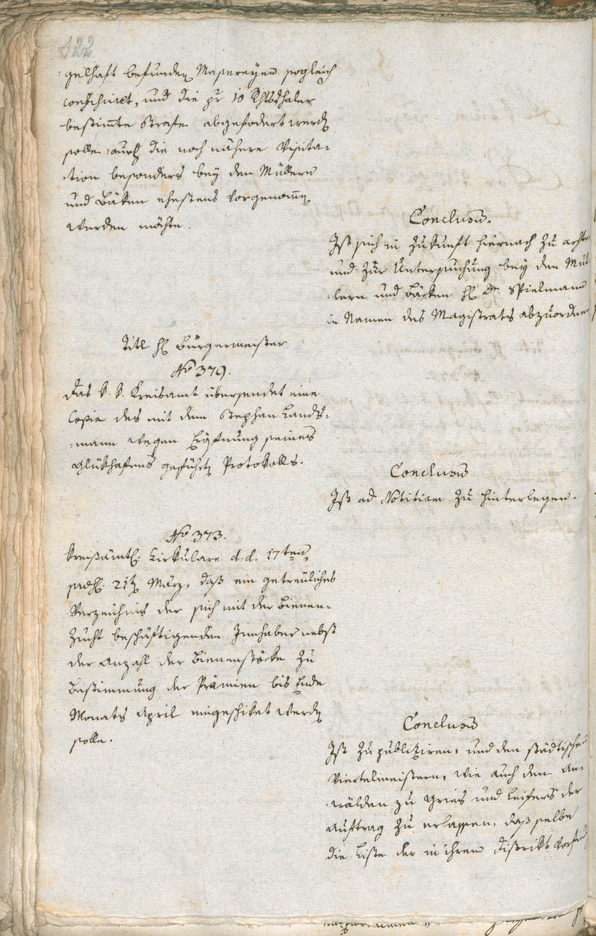 122
gelhaft befunden Maßereyen sogleich
confiscirt, und die zu 10 Rthsthaler
bestimte Strafe abgefodert werden
solle, auch die noch nähere Visita-
tion besonders bey den Müllern
und Bäken ehestens vorgenomen
werden möchte.
Conclusum.
Ist sich in Zukunft hiernach zu achten
und zur Untersuchung bey den Mül-
lern und Bäken H. Spielmann
in Namen des Magistrats abzuordnen
Titl H Bürgermeister
No 379.
Das k. k. Kreisamt übersendet eine
Copie des mit dem Stephan Lands-
mann wegen Eröfnung seines
Glükhafens geführten Protokolls.
Conclusum
Ist ad Notitiam zu hinterlegen.
No 373.
Kreisämtl. Cirkulare d. d. 17ten
März, daß ein getreuliches
Verzeichnis der sich mit der Bienen-
zucht beschäftigenden Innhaber nebst
der Anzahl der Bienenstöcke zu
Bestimmung der Prämien bis Ende
Monats April eingeschiket werden
solle.
Conclusum
Ist zu publiziren, und den städtischen
Viertelmeistern, wie auch den An-
wälden zu Gries und Leifers der
Auftrag zu erlassen, daß selbe
die Liste der in ihren Distrikt